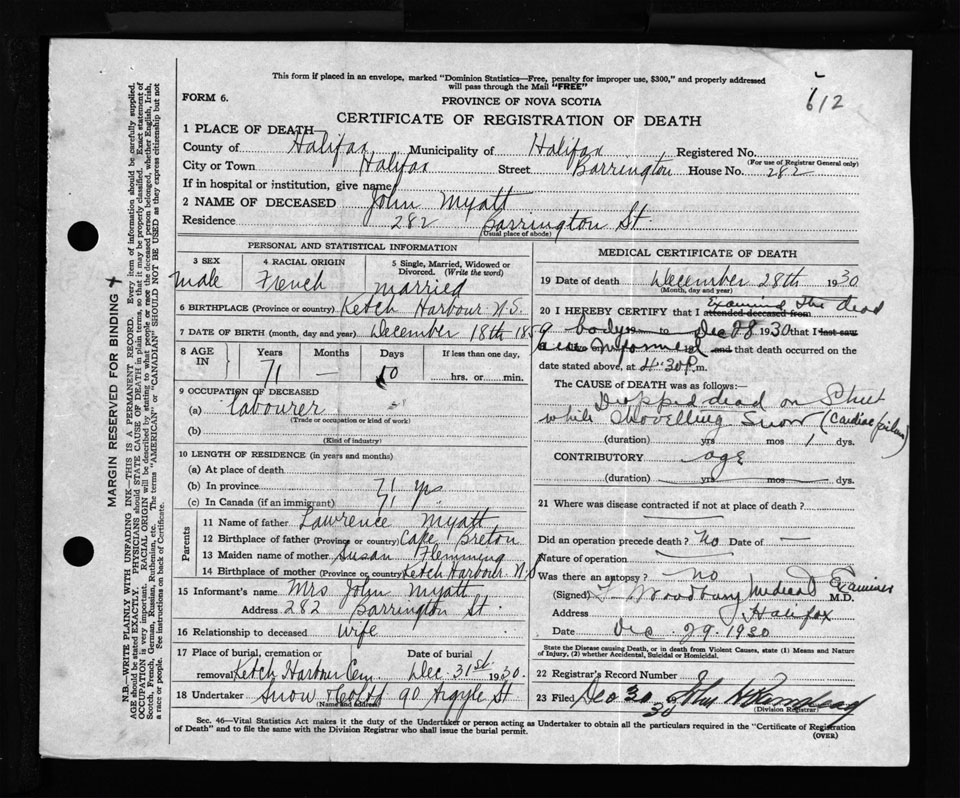 This form if placed in an envelope, marked "Dominion Statistics—Free, penalty for improper use, $300," and properly addressed
will pass through the Mail "FREE"
612
FORM 6.
PROVINCE OF NOVA SCOTIA
CERTIFICATE OF REGISTRATION OF DEATH
1 PLACE OF DEATH—
County of Halifax Municipality of Halifax Registered No.
(For use of Registrar General only)
City or Town Halifax Street Barrington House No. 282
If in hospital or institution, give name
2 NAME OF DECEASED John Myatt
Residence 282 Barrington St.
(Usual place of abode)
PERSONAL AND STATISTICAL INFORMATION
3 SEX 4 RACIAL ORIGIN 5 Single, Married, Widowed or
Divorced. (Write the word)
Male French Married
6 BIRTHPLACE (Province or country) Ketch Harbour N.S.
7 DATE OF BIRTH (month, day and year) December 18th 1859
8 AGE IN Years Months Days If less than one day,
71 — 10 hrs. or min.
9 OCCUPATION OF DECEASED
(a) Labourer
(Trade or occupation or kind of work)
(b)
(Kind of industry)
10 LENGTH OF RESIDENCE (in years and months)
(a) At place of death
(b) In province 71 yrs
(c) In Canada (if an immigrant)
Parents
11 Name of father Lawrence Myatt
12 Birthplace of father (Province or country) Cape Breton
13 Maiden name of mother Susan Flemming
14 Birthplace of mother (Province or country) Ketch Harbour N.S
15 Informant's name Mrs John Myatt
Address 282 Barrington St.
16 Relationship to deceased wife
17 Place of burial, cremation or removal Date of burial
Ketch Harbour Cem. Dec 31st 1930.
18 Undertaker Snow & Co Ltd 90 Argyle St
(Name and address)
MEDICAL CERTIFICATE OF DEATH
19 Date of death December 28th 1930
(Month, day and year)
20 I HEREBY CERTIFY that I attended deceased from Examined the dead
body to Dec 28 1930 that I last saw
informed and that death occurred on the
date stated above, at 4:30 P.m.
The CAUSE OF DEATH was as follows:—
Dropped dead on Street
while Shovelling Snow (Cardiac
(duration) yrs mos 1 dys.
CONTRIBUTORY age
(duration) yrs mos dys.
21 Where was disease contracted if not at place of death?
Did an operation precede death? No Date of —
Nature of operation
Was there an autopsy? No
(Signed) Woodbury Medical Examiner M.D.
Address Halifax
Date Dec 29. 1930
State the Disease causing Death, or in death from Violent Causes, state (1) Means and Nature
of Injury, (2) whether Accidental, Suicidal or Homicidal.
22 Registrar's Record Number
23 Filed Dec 30 30 John
(Division Registrar)
Sec. 46—Vital Statistics Act makes it the duty of the Undertaker or person acting as Undertaker to obtain all the particulars required in the "Certificate of Registration
of Death" and to file the same with the Division Registrar who shall issue the burial permit.
(OVER)
MARGIN RESERVED FOR BINDING
N.B.—WRITE PLAINLY WITH UNFADING INK—THIS IS A PERMANENT RECORD. Every item of information should be carefully supplied.
AGE should be stated EXACTLY. PHYSICIANS should STATE CAUSE OF DEATH in plain terms, so that it may be properly classified. Exact statement of
OCCUPATION is very important. RACIAL ORIGIN will be described by stating to what people or race the deceased person belonged, whether English, Irish,
Scotch, French, German, Russian, Ruthenian, etc. The terms "AMERICAN" or "CANADIAN" SHOULD NOT BE USED as they express citizenship but not
a race or people. See instructions on back of Certificate.